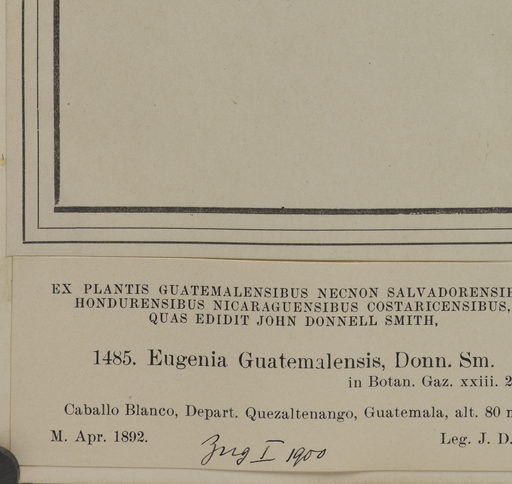 EX PLANTIS GUATEMALENSIBUS NECNON SALVADORENSIB
HONDURENSIBUS NICARAGUENSIBUS COSTARICENSIBUS,
QUAS EDIDIT JOHN DONNELL SMITH,
1485. Eugenia Guatemalensis, Donn. Sm.
in Botan. Gaz. xxiii. 2
Caballo Blanco, Depart. Quezaltenango, Guatemala, alt. 80 m
M. Apr. 1892. Leg. J. D.
I 1900